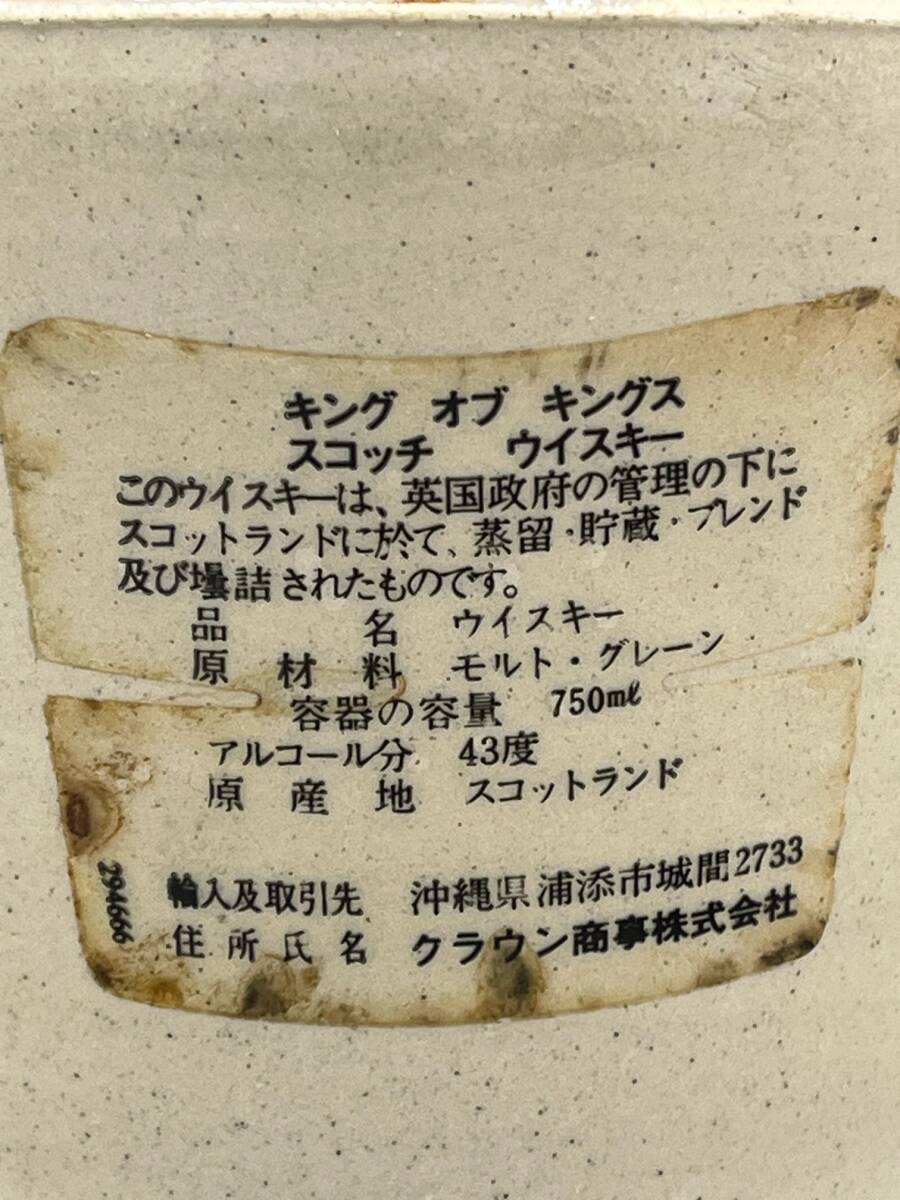 キング オブ キングス
スコッチ ウイスキー
このウイスキーは、英国政府の管理の下に
スコットランドに於て、蒸留・貯蔵・ブレンド
及び壜詰されたものです。
品名 ウイスキー
原材料 モルト・グレーン
容器の容量 750ml
アルコール分 43度
原産地 スコットランド
輸入及取引先 沖縄県浦添市城間2733
住所氏名 クラウン商事株式会社
294666